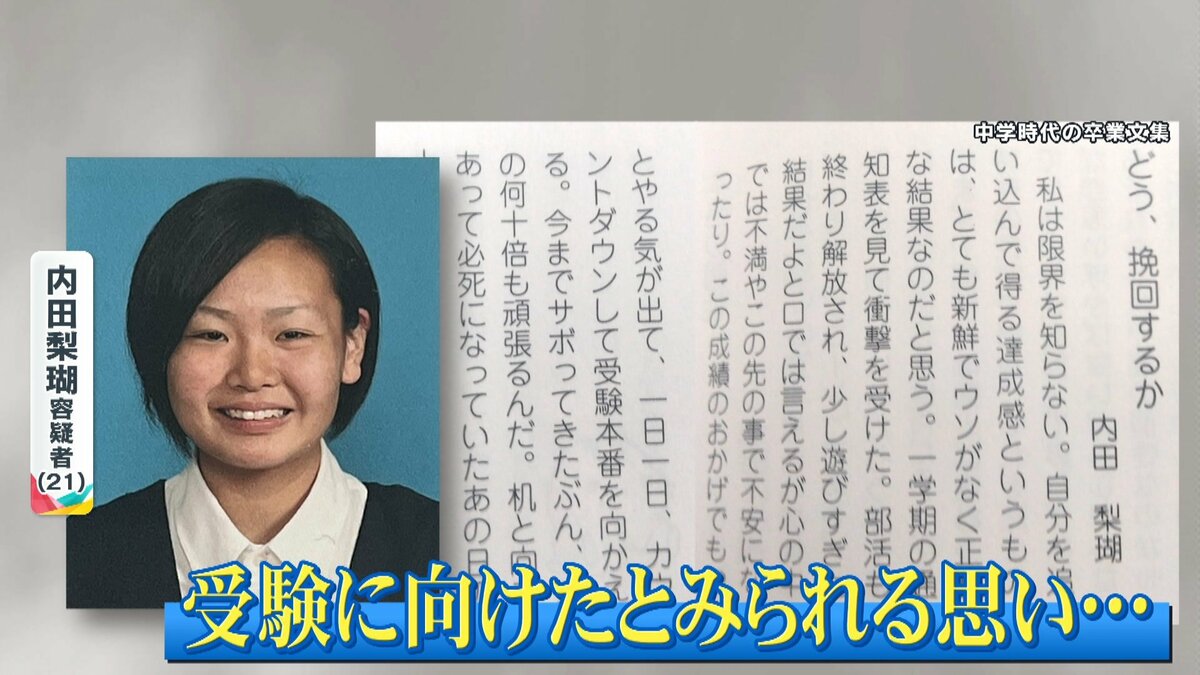 中学時代の卒業文集
どう、挽回するか
内田 梨瑚
私は限界を知らない。自分を追
い込んで得る達成感というも
は、とても新鮮でウソがなく正
な結果なのだと思う。一学期の通
知表を見て衝撃を受けた。部活も
終わり解放され、少し遊びすぎ
結果だよと口では言えるが心の中
では不満やこの先の事で不安にな
ったり。この成績のおかげでも
とやる気が出て、一日一日、カ
ントダウンして受験本番を向かえ
る。今までサボってきたぶん、
の何十倍も頑張るんだ。机と向
あって必死になっていたあの日
内田梨瑚容疑者(21)
受験に向けたとみられる思い…